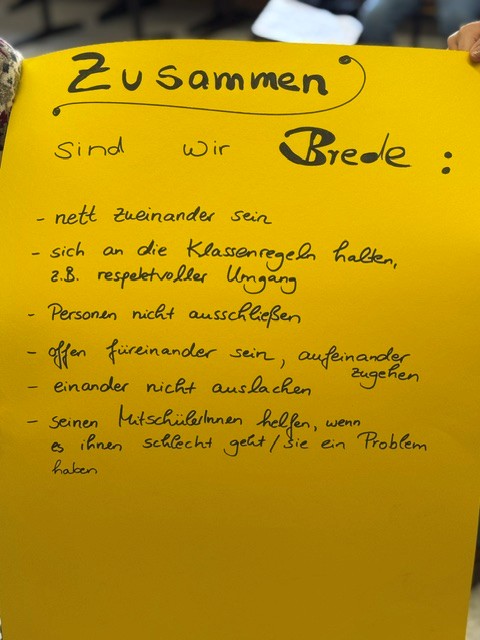 Zusammen
sind wir Brede:
- nett zueinander sein
- sich an die Klassenregeln halten,
z.B. respektvoller Umgang
- Personen nicht ausschließen
- offen füreinander sein, aufeinander
zugehen
- einander nicht auslachen
- seinen MitschülerInnen helfen, wenn
es ihnen schlecht geht/sie ein Problem
haben